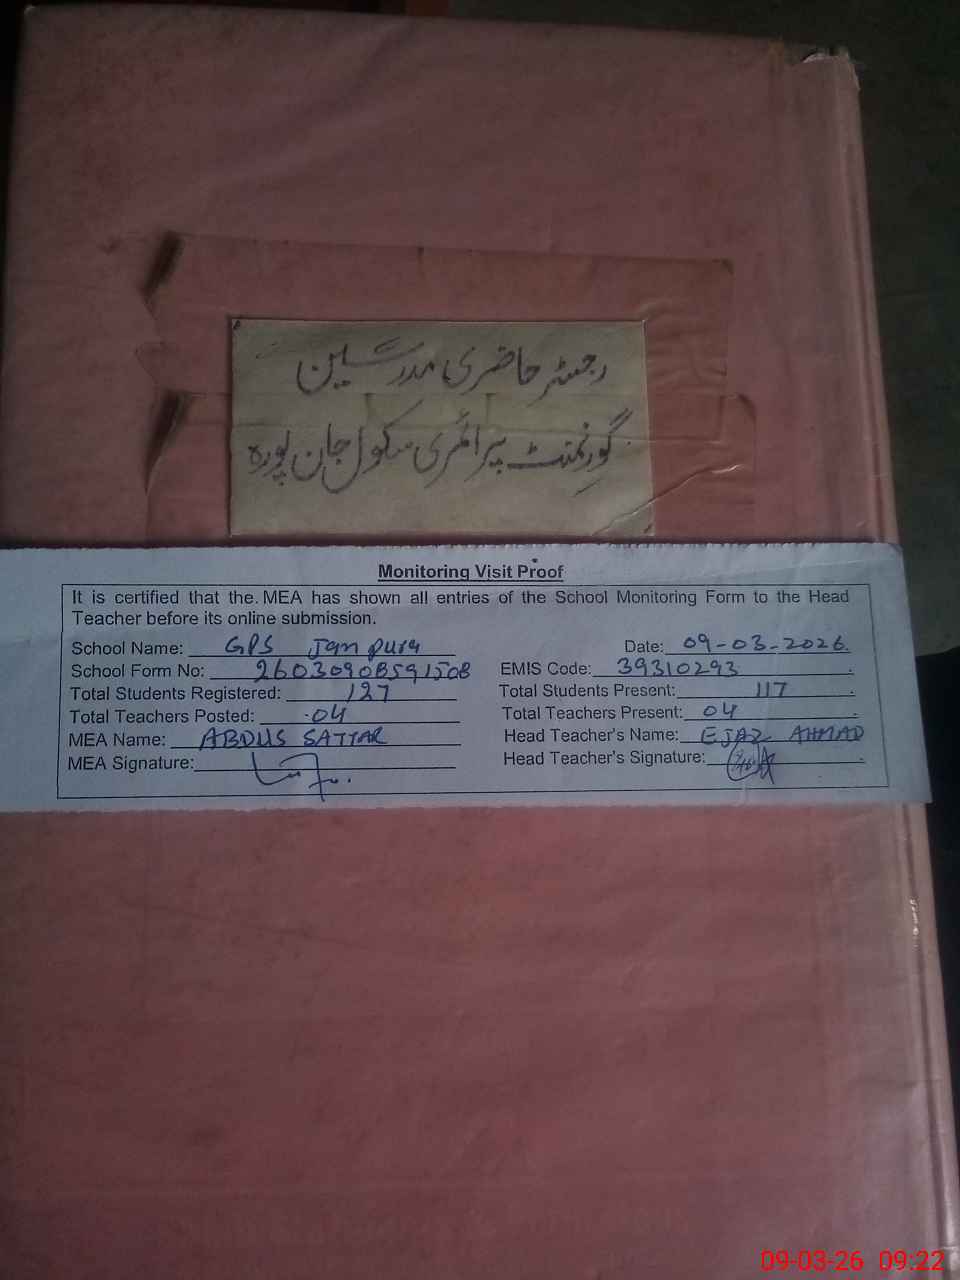 رجسٹر حاضری مدرسین
گورنمنٹ پرائمری سکول جان پورہ
Monitoring Visit Proof
It is certified that the MEA has shown all entries of the School Monitoring Form to the Head
Teacher before its online submission.
School Name: GPS Jan pura Date: 09-03-2026.
School Form No: 26030908591508 EMIS Code: 39310293
Total Students Registered: 127 Total Students Present: 117
Total Teachers Posted: 04 Total Teachers Present: 04
MEA Name: ABDUS SATTAR Head Teacher's Name: EJAZ AHMAD
MEA Signature: Head Teacher's Signature:
09-03-26 09:22